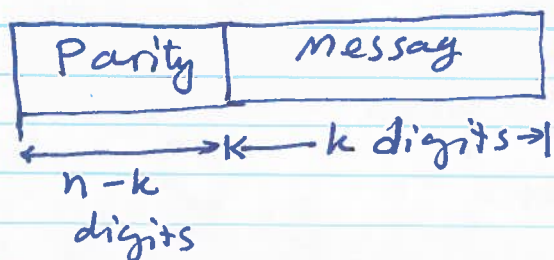 Parity Messag
k digits
n-k
digits